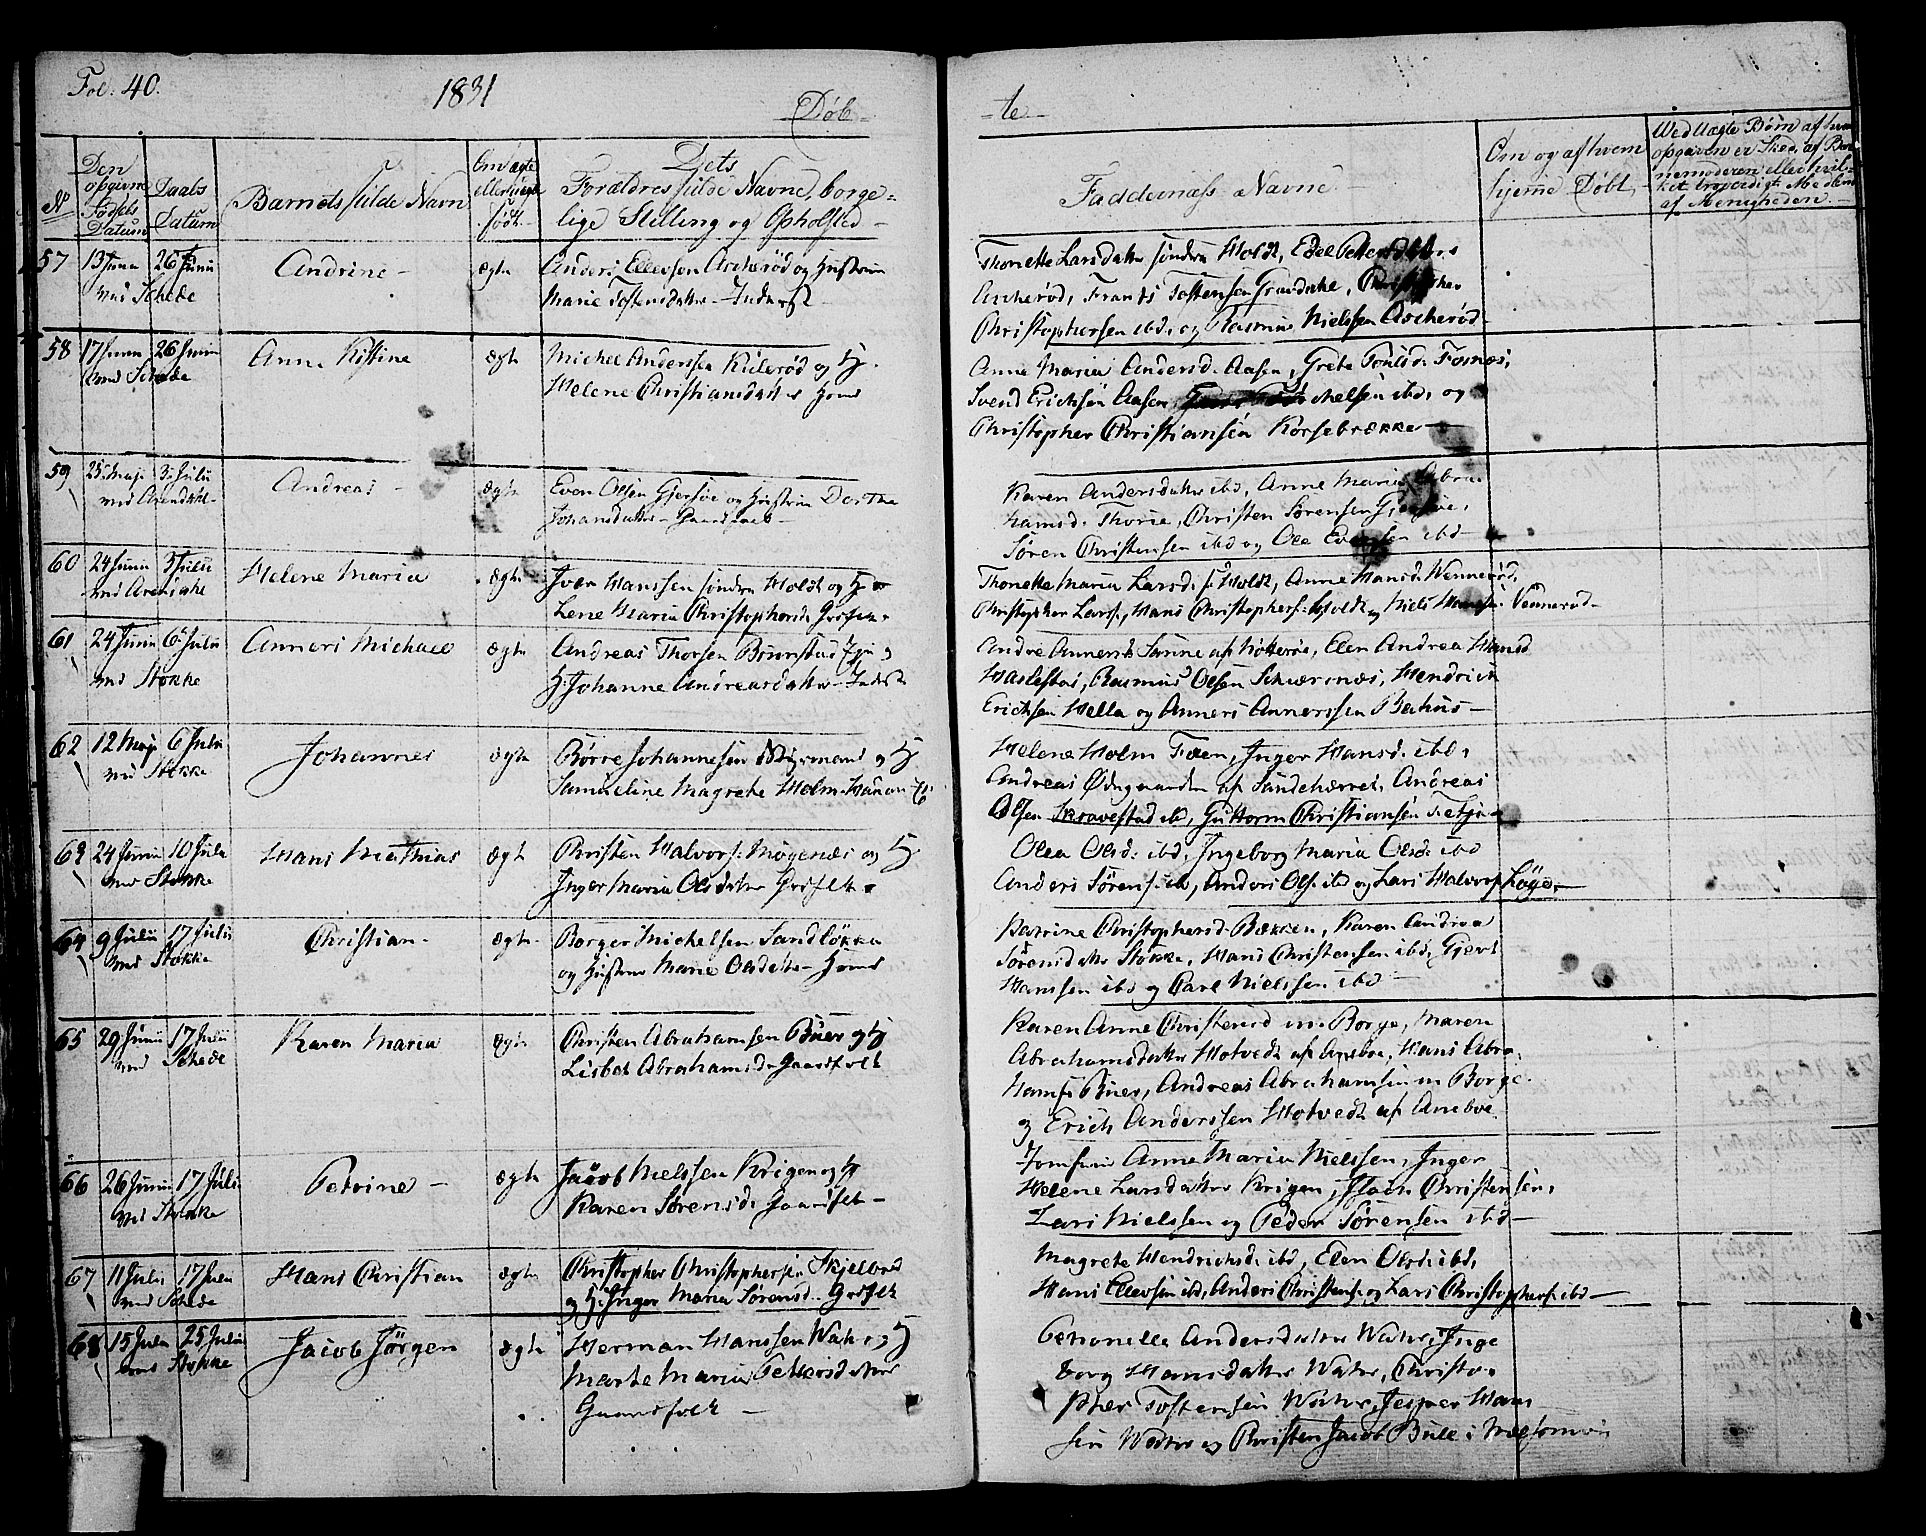 Fol. 40.
1831
Døb-
-te-
No
Den opgivne Fødsels Datum
Daabs Datum
Barnets fulde Navn
Om ægte eller uægte født
Dets
Forældres fulde Navne, borge-
lige Stilling og Opholsted
Faddernes Navne
Om og af hvem
hjemme Døbt
Wed Uægte Børn af hvem
opgaven er skeet, af Bar
nemoderen eller hvil-
ket troværdigt Medlem
af Menigheden
57 13 Juni 26 Juni Andrine ægte Anders Ellevsen Ascherød og Hustrue
ved Schede Marie Tostensdatter Inderst
Thonette Larsdatter søndre Holdt, Edel Pettersdatter
Ascherød, Frants Tostensen Gravdahl, Christopher
Christophersen ibd. og Rasmus Nielssen Ascherød
58 17 Juni 26 Juni Anne Kistine ægte Michel Anderssen Kulerød og H.
ved Schede Helene Christiansdatter
Anne Maria Andersd. Aasen, Grete Poulsd. Fossnæs,
Svend Erichsen Aasen Michelsen ibd. og
Christopher Christiansen Korsebrække
59 25 Maji 3 Julii Andreas ægte Even Olsen Gjersøe og Hustrue Dorthe
ved Arendahl Johansdatter Gaardfolk
Karen Andersdatter ibd, Anne Maria Abra
hamsd. Thorie, Christen Sørensen Gjersøe,
Søren Christensen ibd og Ole Evensen ibd
60 24 Junii 3 Julii Helene Maria ægte Iver Hanssen søndre Holdt og H
ved Arendahl Lene Maria Christophersd. Grdfolk
Thonette Maria Larsd. s. Holdt, Anne Hansd. Wennerød,
Christopher Larss., Hans Christophers. Holdt og Niels Hansen Vennerød
61 24 Junii 6 Julii Anners Michael ægte Andreas Thorsen Brunstad og
ved Stokke H. Johanne Andreasdatter Inderst
Andre Annersd. Sanne af Nøtterøe, Elen Andrea Hansd
Haslestad, Rasmus Olsen Schiernæs, Hendrich
Erichsen Hella og Anners Annerssen Bahus
62 12 Maji 6 Julii Johannes ægte Børre Johannesen Styrmand og H
ved Stokke Samueline Magrethe Holm
Helene Holm Faen, Inger Hansd. ibd,
Andreas Ødegaarden af Sandehærred, Andreas
Olsen Skravestad ibd, Guttorm Christiansen
63 24 Junii 10 Julii Hans Mathias ægte Christen Halvors. Mögenæs og H.
ved Stokke Inger Maria Olsdatter Grdfolk
Olea Olsd. ibd, Ingeborg Maria Olsd. ibd
Anders Sörens. ibd, Anders Ols. ibd og Lars Halvors.
64 9 Julii 17 Julii Christian ægte Borger Michelsen Sandløkka
ved Stokke og Hustrue Marie Olsdatter
Katrine Christophersd. Bækken, Karen Andrea
Sørensdatter Stokke, Hans Christensen ibd, Gjert
Hanssen ibd og Carl Nielssen ibd
65 29 Junii 17 Julii Karen Maria ægte Christen Abrahamsen Buer og H
ved Schede Lisbet Abrahamsd. Gaardfolk
Karen Anne Christensd m. Borge, Maren
Abrahamsdatter Hotvedt af Aneboe, Hans Abra
hams. Buer, Andreas Abrahamsen m Borge
og Erich Anderssen Hotvedt af Aneboe
66 26 Junii 17 Julii Petrine ægte Jacob Nielssen Krigen og H
ved Stokke Karen Sørensd. Gaardfolk
Jomfrue Anne Maria Nielssen, Inger
Helene Larsdatter Krigen, Christensen,
Lars Nielssen og Peder Sörensen ibd
67 11 Julii 17 Julii Hans Christian ægte Christopher Christophersen Skjelbred
ved Schede og H. Inger Maria Sörensd. Grdfolk
Magrete Hendrichsd. ibd, Elen Olsd. ibd,
Hans Ellevsen ibd, Anders Christens. og Lars Christophers. ibd
68 15 Julii 25 Julii Jacob Jørgen ægte Herman Hanssen Watne og H
ved Stokke Marte Maria Pettersdatter
Gaardfolk
Petronelle Andersdatter Watne, Inge
borg Hansdatter Watne, Christo-
pher Tostensen Watne, Jesper Hans
sen Watne og Christen Jacob Bull i